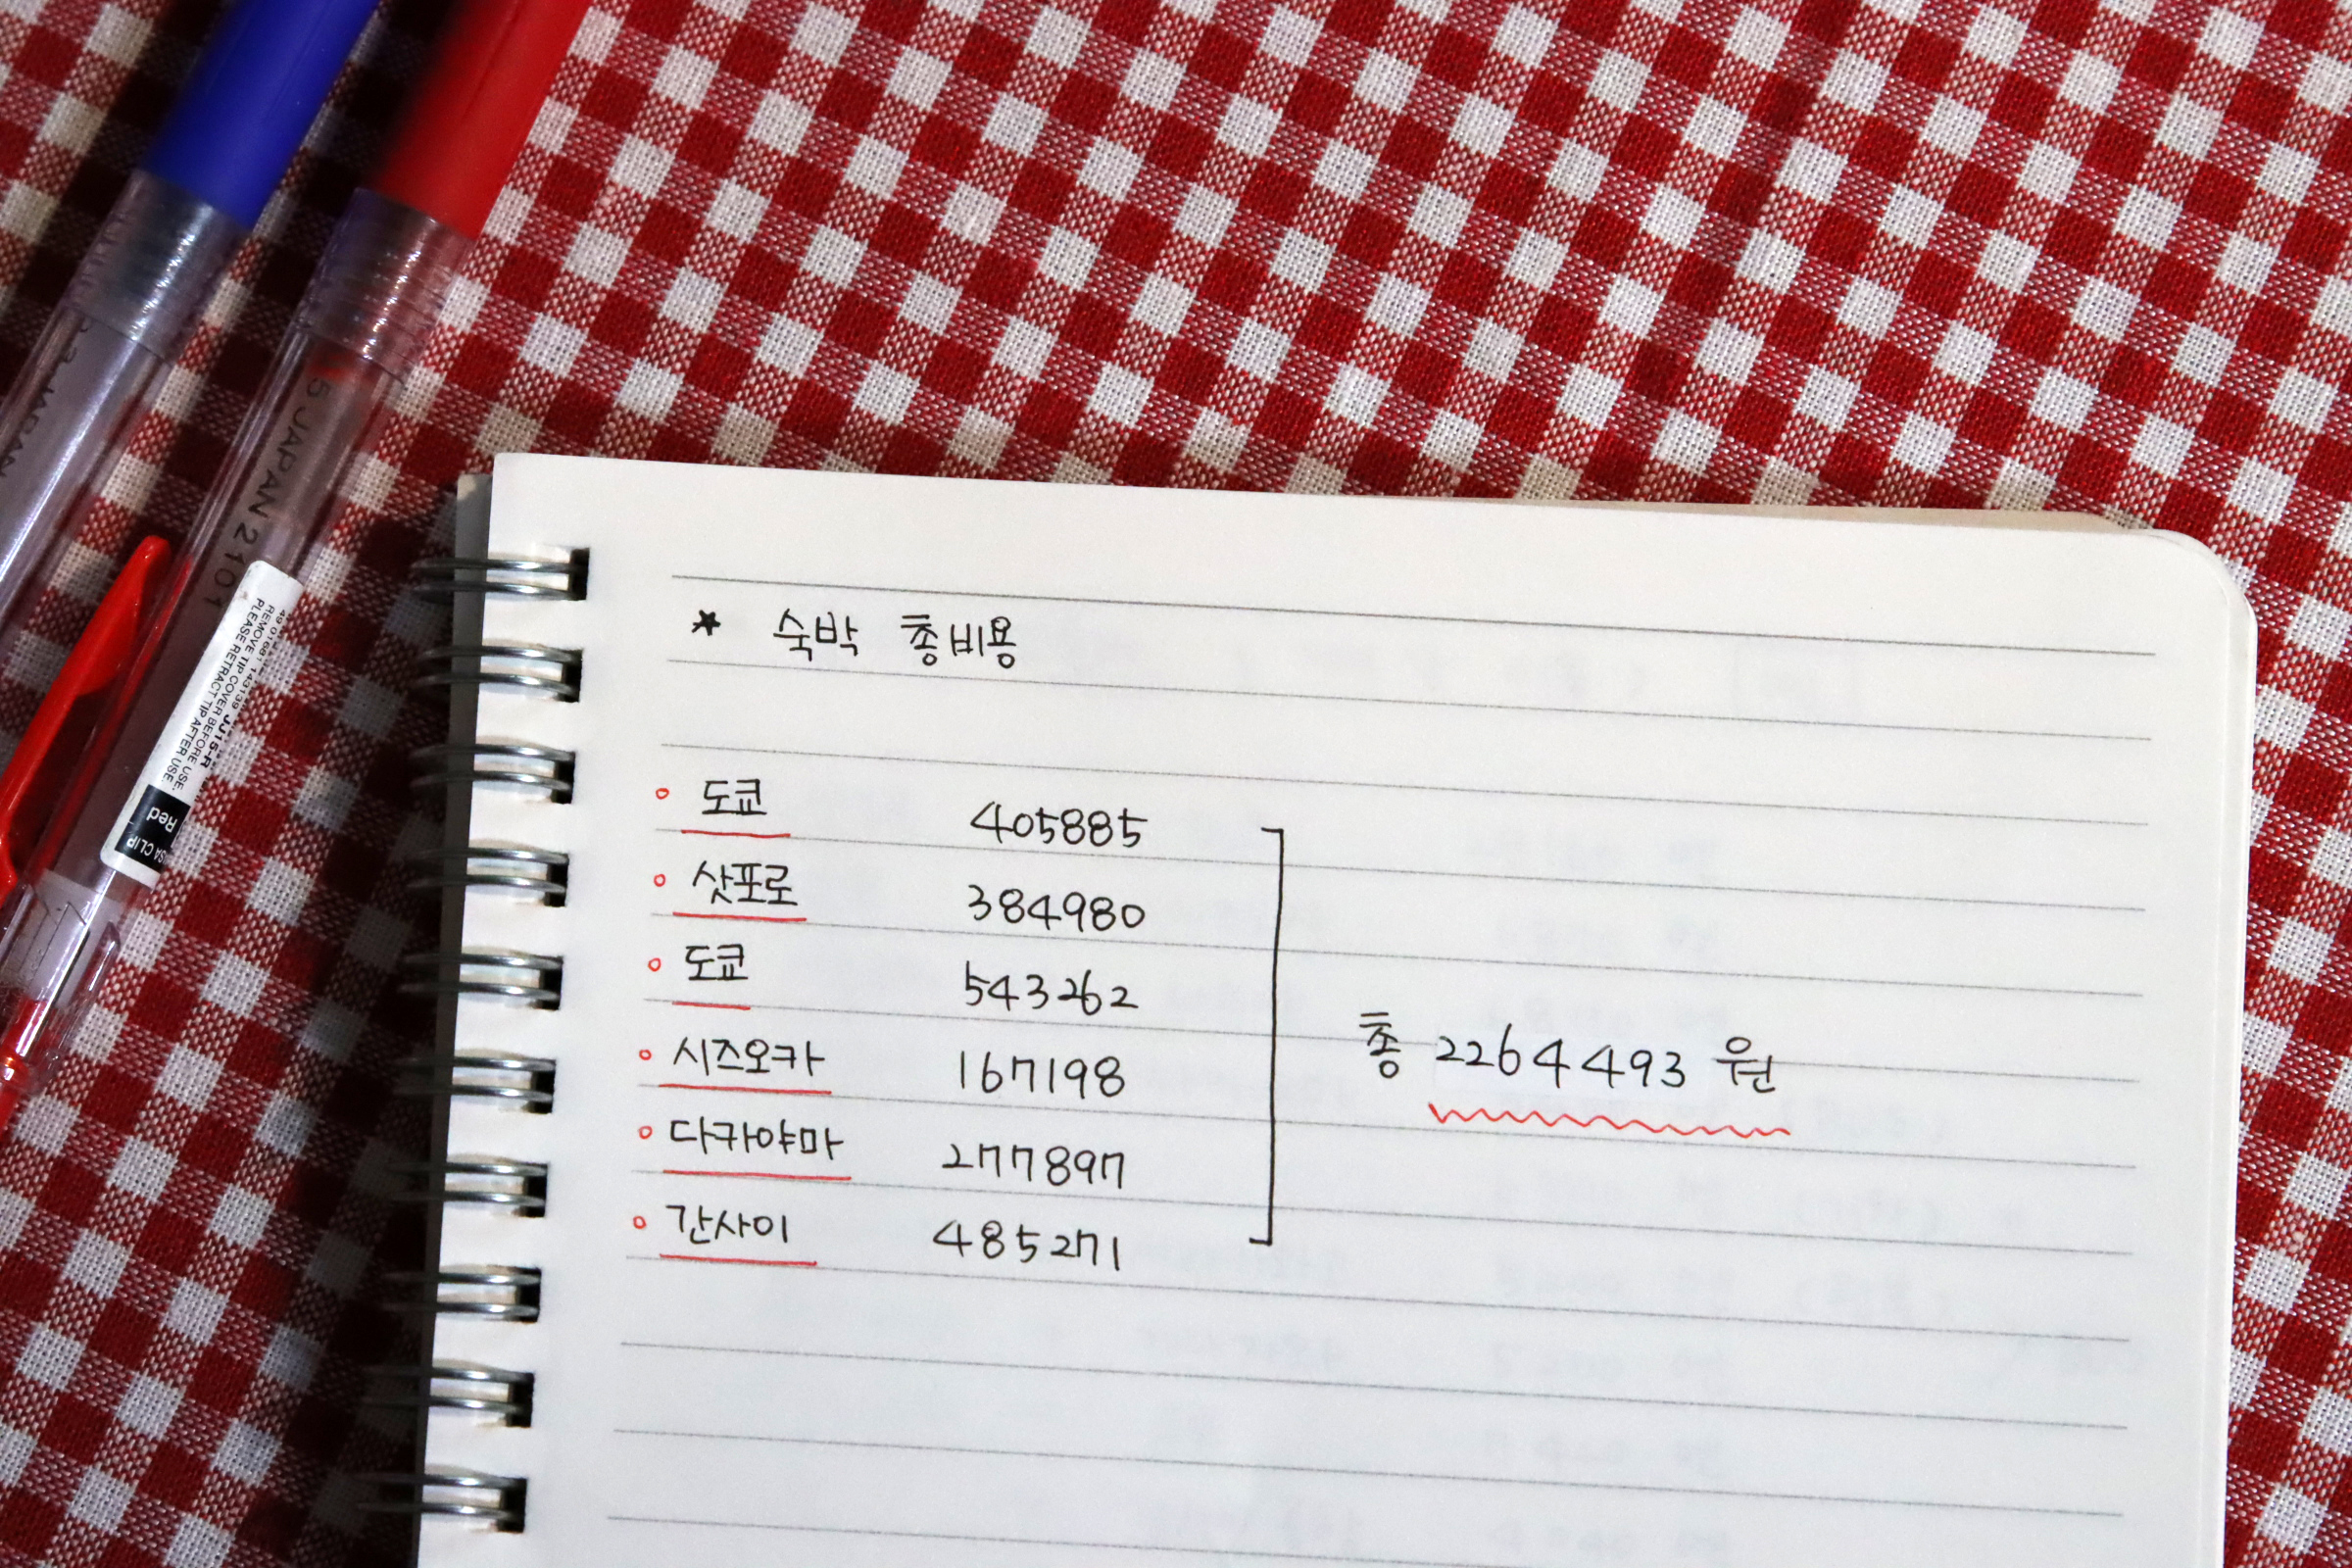 ★ 숙박 총비용
도쿄 405885
삿포로 384980
도쿄 543262
시즈오카 167198
다카야마 277897
간사이 485271
총 2264493 원
5 JAPAN 2101
JJ15-R
REMOVE TIP COVER BEFORE USE.
PLEASE RETRACT TIP AFTER USE.
Red
CLIP